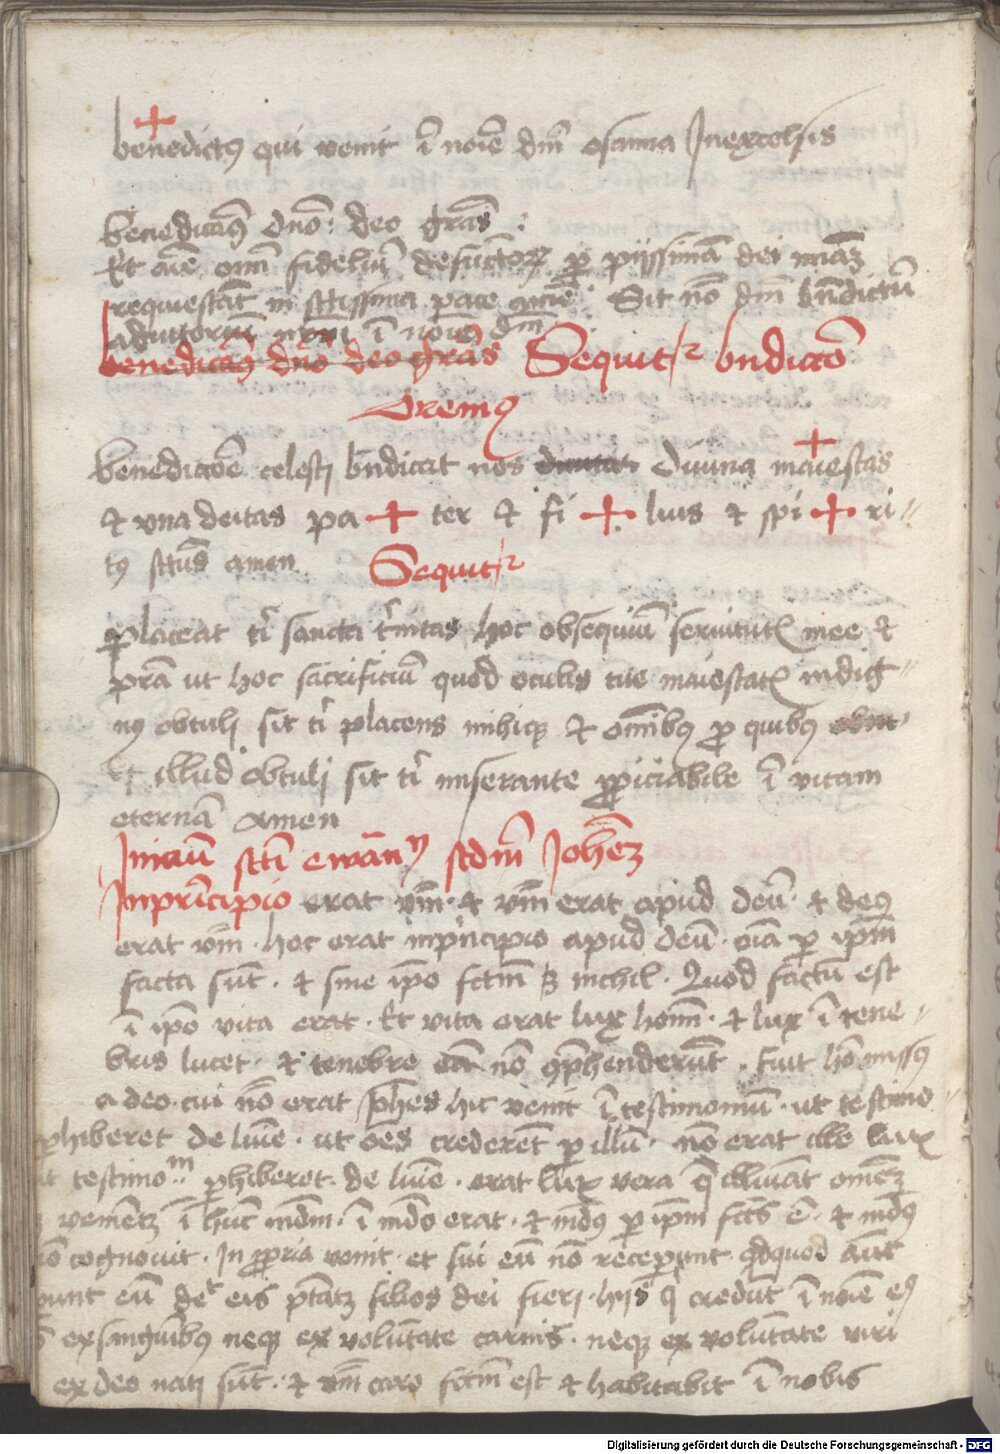 benedictꝰ qui venit ī noīe dn̄i osanna Inexcelsis
benedicamꝰ dn̄o: deo grās:
Et aīe om̄ fideliū defūctoꝝ ꝑ piissimā dei mīaꝫ
requiescāt in sctīssima pace amē: Sit nō dn̄i bn̄dictū
adiutoriū nrm̄ ī noīe dn̄i
benedicamꝰ dn̄o deo grās Sequitr bn̄dictō
Oremꝰ
benedictōe celesti bn̄dicat nos diuina maiestas
et vna deitas pa ter et fi lius et spi ri//
tꝰ sctūs amen Sequitr
placeat t̄i sancta t̄nitas hoc obsequiū seruitutꝭ mee et
prā ut hoc sacrificiū quod oculis tue maiestatꝭ indig//
nꝰ obtuli sit t̄i placens mihiqꝫ et om̄ibꝰ ꝓ quibꝰ
et illud obtuli sit t̄i miserante ꝓpiciabile ī vitam
eternā Amen
Iniciū sctī ewān scd̄m Joheꝫ
Inprīcipio erat vm̄ · et vm̄ erat apud deū · et deꝰ
erat vm̄ · hoc erat inprīcipio apud deū · oīa ꝑ ip̄m
facta sūt · et sine ip̄o fctm̄ ē nichil · Quod factū est
ī ip̄o vita erat · Et vita erat lux hoīm · et lux ī tene//
bris lucet · et tenebre eā nō ꝯp̄henderūt · fuit hō missꝰ
a deo cui nōē erat Johēs hic venit ī testimoniū · ut testimo
phiberet de luīe · ut oēs crederēt ꝑ illū · nō erat ille lux
ut testimo..m ꝑhiberet · de luīe · erat lux vera q̄ illuīat omēꝫ
venientꝫ ī hūc mdm̄ · ī mdō erat · et mdꝰ ꝑ ip̄m fctꝰ ē · et mdꝰ
cognouit · In ꝓpria venit · et sui eū nō recepunt · qdquod aūt
punt eū det eis ptātꝫ filios dei fieri · hijs q̄ credūt ī noīe eiꝰ
exsanguībꝰ neqꝫ ex volūtate carnis · neqꝫ ex volūtate viri
ex deo nati sūt · et vm̄ caro fctm̄ est et habitabit ī nobis
Digitalisierung gefördert durch die Deutsche Forschungsgemeinschaft - DFG